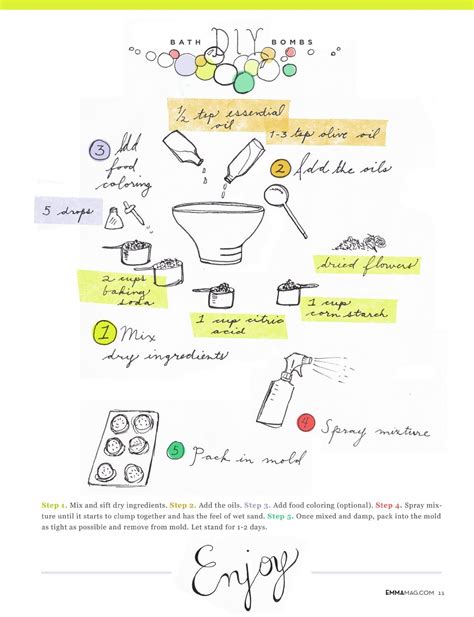 BATH DIY BOMBS
1/2 tsp essential
oil
1-3 tsp olive oil
3 Add
food
coloring
2 Add the oils
5 drops
dried flowers
2 cups
baking
soda
1 cup citric
acid
1 cup
corn starch
1 Mix
dry ingredients
4
Spray mixture
5 Pack in mold
Step 1. Mix and sift dry ingredients. Step 2. Add the oils. Step 3. Add food coloring (optional). Step 4. Spray mix-
ture until it starts to clump together and has the feel of wet sand. Step 5. Once mixed and damp, pack into the mold
as tight as possible and remove from mold. Let stand for 1-2 days.
Enjoy
EMMAMAG.COM 11